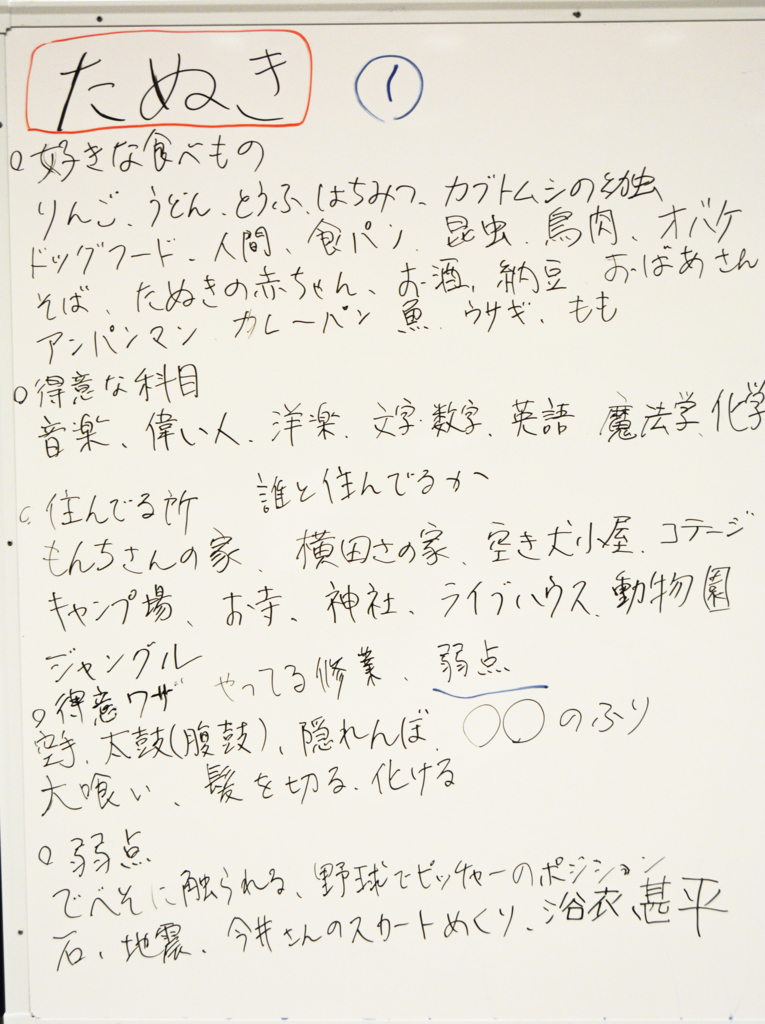 たぬき ①
○好きな食べもの
りんご、うどん、とうふ、はちみつ、カブトムシの幼虫
ドッグフード、人間、食パン、昆虫、鳥肉、オバケ
そば、たぬきの赤ちゃん、お酒、納豆 おばあさん
アンパンマン カレーパン 魚 ウサギ、もも
○得意な科目
音楽、偉い人、洋楽、文字・数字、英語 魔法学、化学
○住んでる所 誰と住んでるか
もんちさんの家、横田さの家、空き犬小屋、コテージ
キャンプ場、お寺、神社、ライブハウス、動物園
ジャングル
○得意ワザ やってる修業、弱点
空手、太鼓(腹鼓)、隠れんぼ、○○のふり
大喰い、髪を切る、化ける
○弱点
でべそに触られる、野球でピッチャーのポジション
石、地震、今井さんのスカートめくり、浴衣、甚平